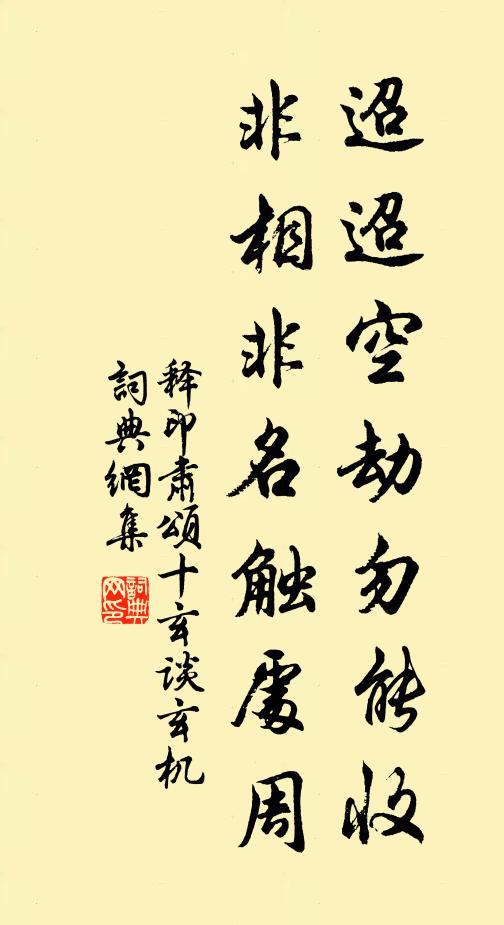 迢迢空劫勿能收
非相非名触處周
释印肃頌十玄谈玄机
詞典網集
詞典网印